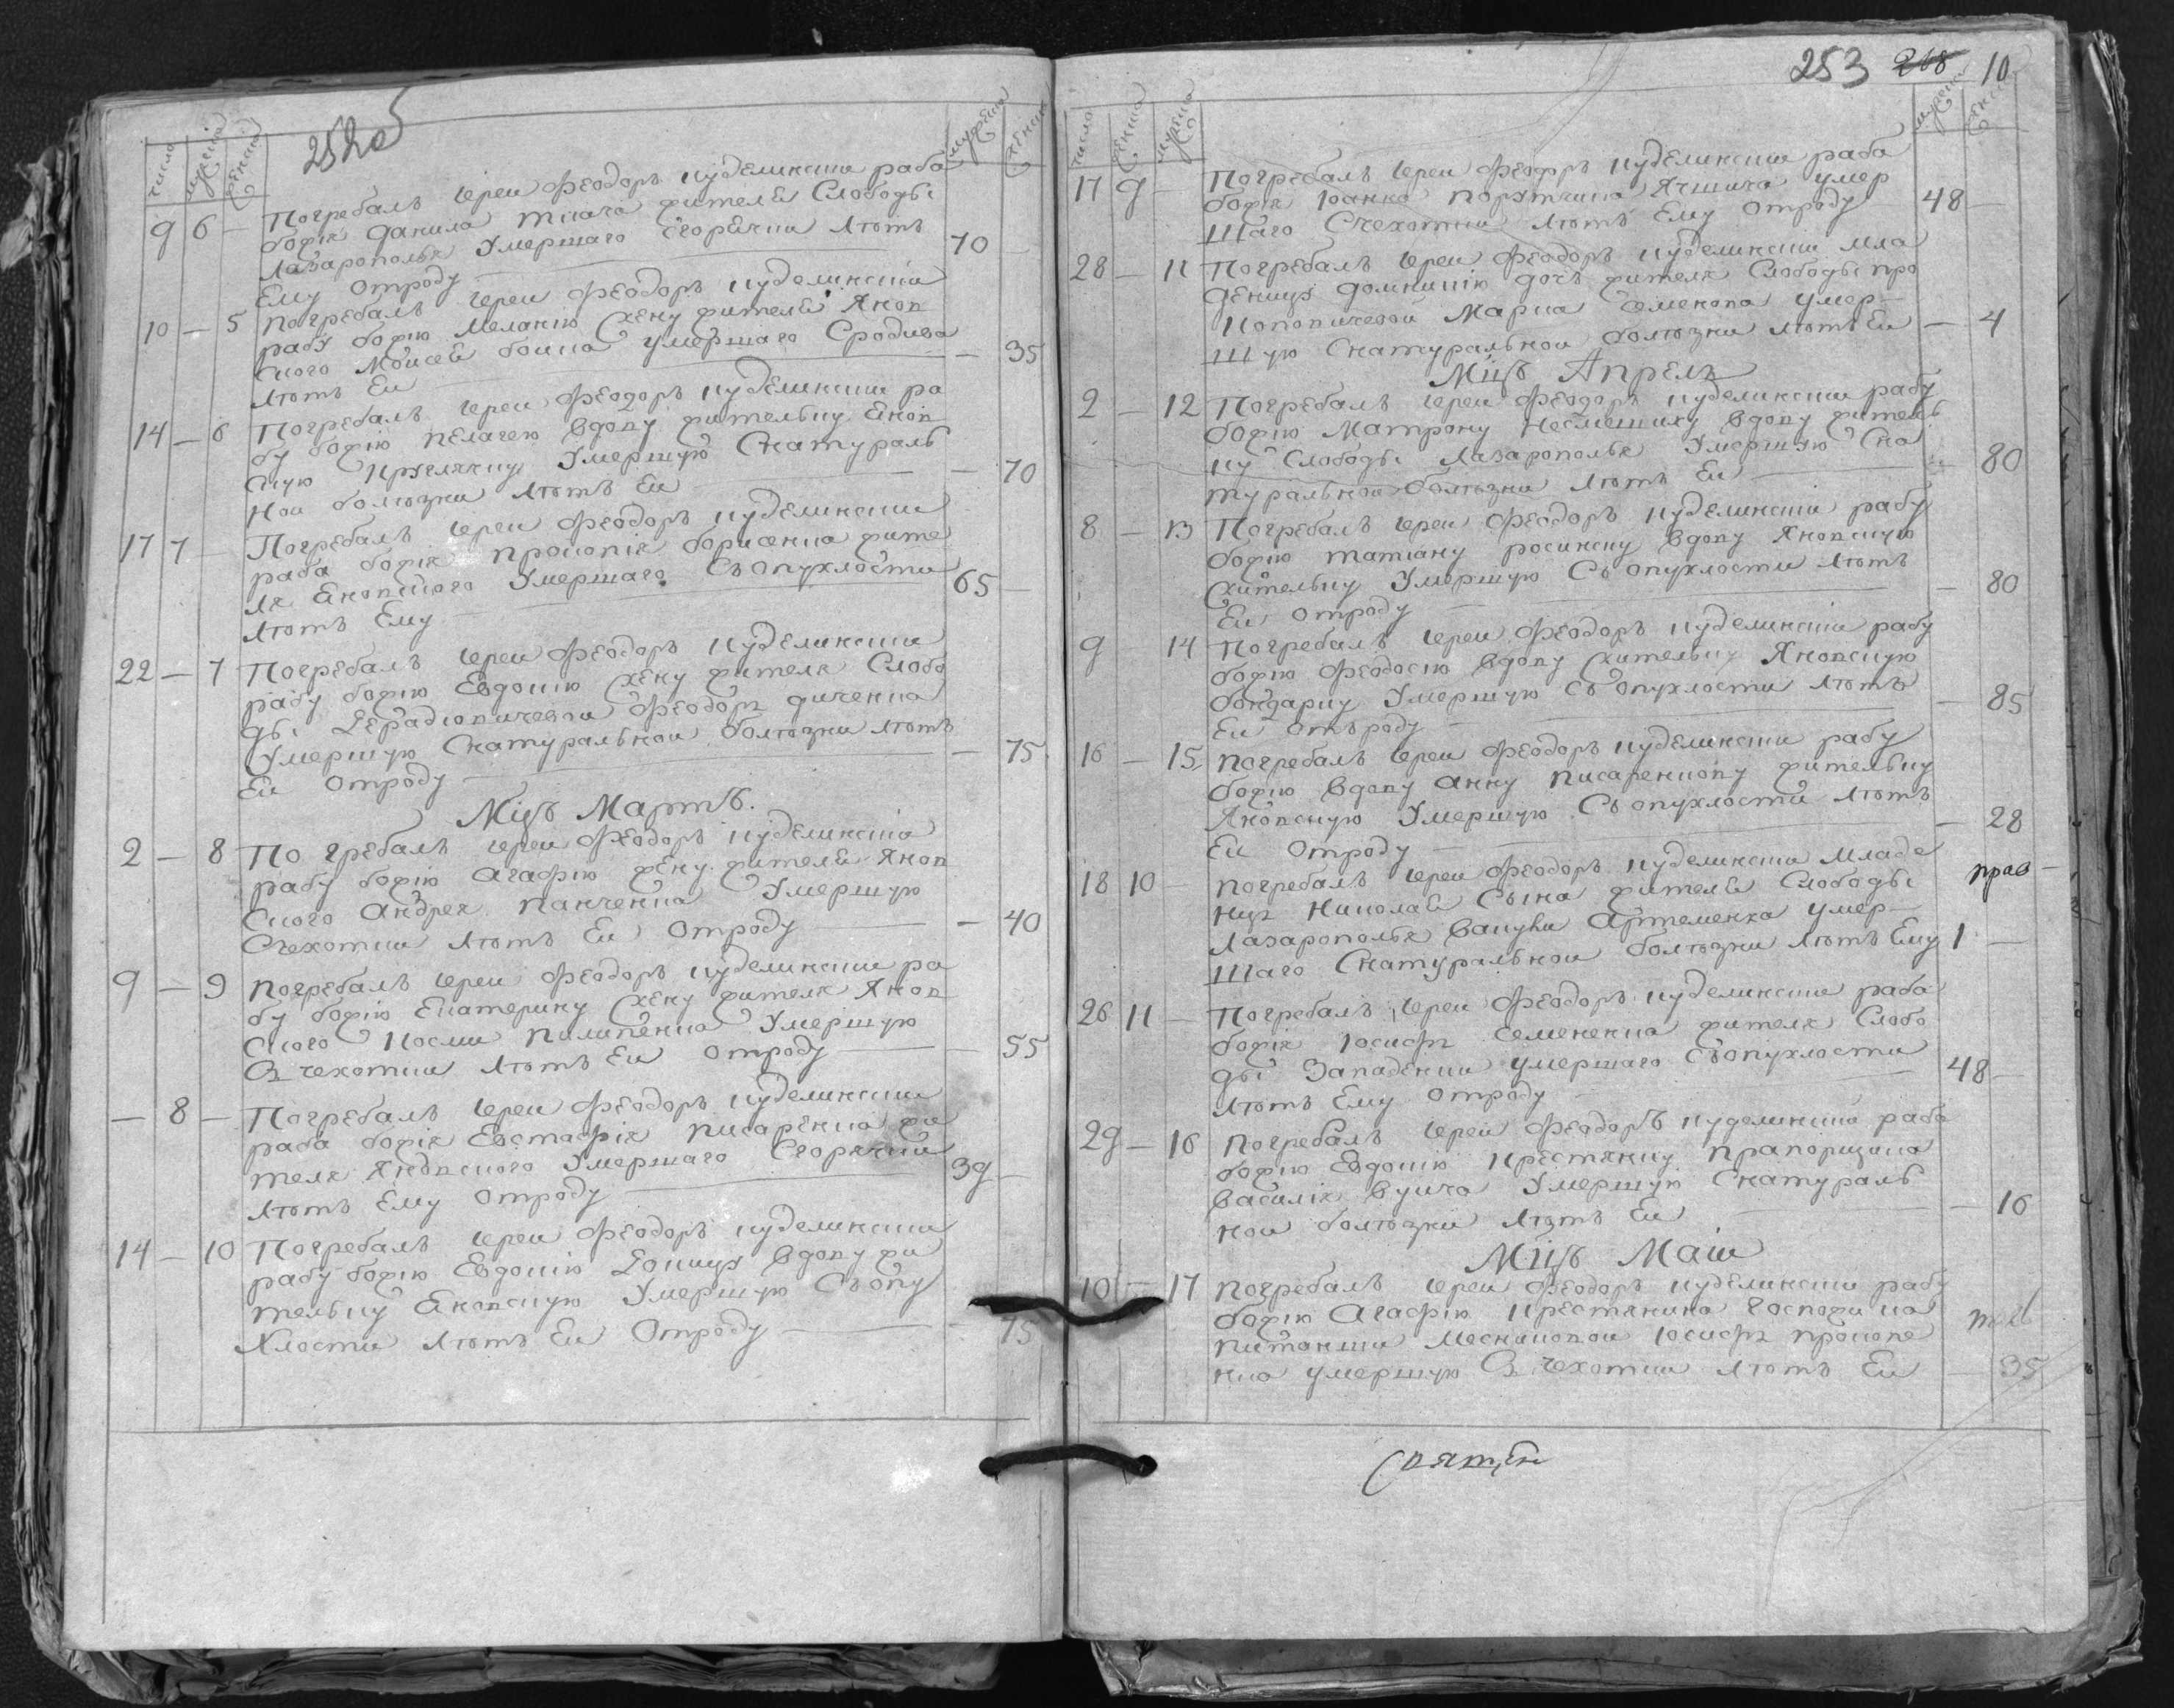 252об
число мужеска женска мужеска женска
9 6 — Погребалъ Іереи Феодоръ кудѣлинскіи раба
божія данила ткача жителя Слободы
Лазарополья Умершаго Сгорячки лѣтъ 70 —
Ему отроду
10 — 5 Погребалъ Іереи Феодоръ кудѣлинскіи
рабу божію Меланію жену жителя Яков
ского Моисея умершаго Сродива — 35
лѣтъ Еи
14 — 6 Погребалъ Іереи Феодоръ кудѣлинскіи ра
бу божію Пелагею вдову жительку Яков
скую Умершую Снатураль
нои болѣзни лѣтъ Еи — 70
17 7 — Погребалъ Іереи Феодоръ кудѣлинскіи
раба божія прокопія борисенка жите
ля Яковского Умершаго Съопухлости 65 —
лѣтъ Ему
22 — 7 Погребалъ Іереи Феодоръ кудѣлинскіи
рабу божію Евдокію жену жителя Слобо
ды Герадіовичевои Феодора диченка
Умершую Снатуральнои болѣзни лѣтъ — 75
Еи отроду
Мцъ Мартъ.
2 — 8 Погребалъ Іереи Феодоръ кудѣлинскіи
рабу божію Агафію жену жителя Яков
ского Андрея Панченка Умершую
Счехотки лѣтъ Еи отроду — 40
9 — 9 Погребалъ Іереи Феодоръ кудѣлинскіи ра
бу божію Екатерину жену жителя Яков
ского Косми Пилипенка Умершую
Зчехотки лѣтъ Еи отроду — 55
— 8 — Погребалъ Іереи Феодоръ кудѣлинскіи
раба божія Евстафія Писаренка жи
теля Яковского Умершаго Сгорячки 39 —
лѣтъ Ему отроду
14 — 10 Погребалъ Іереи Феодоръ кудѣлинскіи
рабу божію Евдокію вдову жи
тельку Яковскую Умершую Съопу
хлости лѣтъ Еи отроду — 75
253 268 10
число женска мужеска мужеска женска
17 9 — Погребалъ Іереи Феодоръ кудѣлинскіи раба
божія Іоанна поручика умер
шаго Счехотки лѣтъ Ему отроду 48 —
28 — 11 Погребалъ Іереи Феодоръ кудѣлинскіи мла
денца домникію дочь жителя Слободы про
коповичевои Марка Семенова умер
шую Снатуральнои болѣзни лѣтъ Еи — 4
Мцъ Апрель
2 — 12 Погребалъ Іереи Феодоръ кудѣлинскіи рабу
божію Матрону вдову житель
ку Слободы Лазарополья Умершую Сна
туральнои болѣзни лѣтъ Еи — 80
8 — 13 Погребалъ Іереи Феодоръ кудѣлинскіи рабу
божію татіану росинску вдову Яковскую
жительку Умершую Съопухлости лѣтъ
Еи отроду — 80
9 — 14 Погребалъ Іереи Феодоръ кудѣлинскіи рабу
божію Феодосію вдову жительку Яковскую
бондарку Умершую Съопухлости лѣтъ
Еи отъроду — 85
16 — 15 Погребалъ Іереи Феодоръ кудѣлинскіи рабу
божію вдову Анну Писаренкову жительку
Яковскую Умершую Съопухлости лѣтъ
Еи отроду — 28
18 10 — Погребалъ Іереи Феодоръ кудѣлинскіи младе прав
нца Николая Сына жителя Слободы
Лазарополья Вакулы Артеменка умер
шаго Снатуральнои болѣзни лѣтъ Ему 1 —
26 11 — Погребалъ Іереи Феодоръ кудѣлинскіи раба
божія Іосифа Семененка жителя Слобо
ды Западенки умершаго Съопухлости
лѣтъ Ему отроду 48 —
29 — 16 Погребалъ Іереи Феодоръ кудѣлинскіи раба
божію Евдокію крестянку прапорщика
Василія Вуича Умершую Снатураль
нои болѣзни лѣтъ Еи — 16
Мцъ Маіи
10 — 17 Погребалъ Іереи Феодоръ кудѣлинскіи рабу
божію Агафію крестянина Госпожи ка
питанши Іосифа прокопе
нка умершую Зчехотки лѣтъ Еи — 35
Святщен